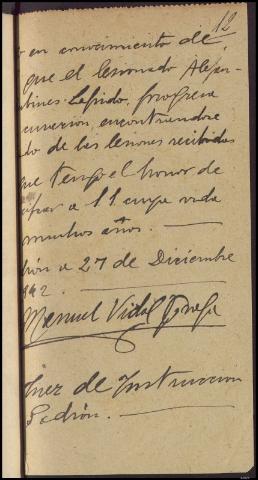 12
en conocimiento de
que el lesionado Alejan-
Lafrido, progresa
curación, encontrandose
to de las lesiones recibidas
que tengo el honor de
a 11 cuya vida
muchos años.
a 27 de Diciembre
942.
Manuel Vidal
Juez de Instruccion
Padrón.